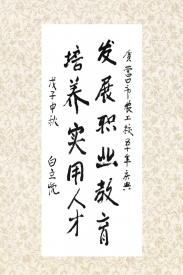 贺营口市农工校五十年庆典
发展职业教育
培养实用人才
戊子中秋
白立忱